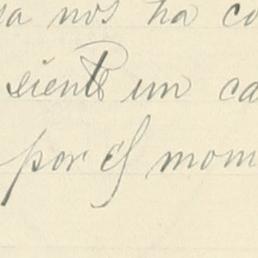 sa nos ha co
siente un ca
por el mom